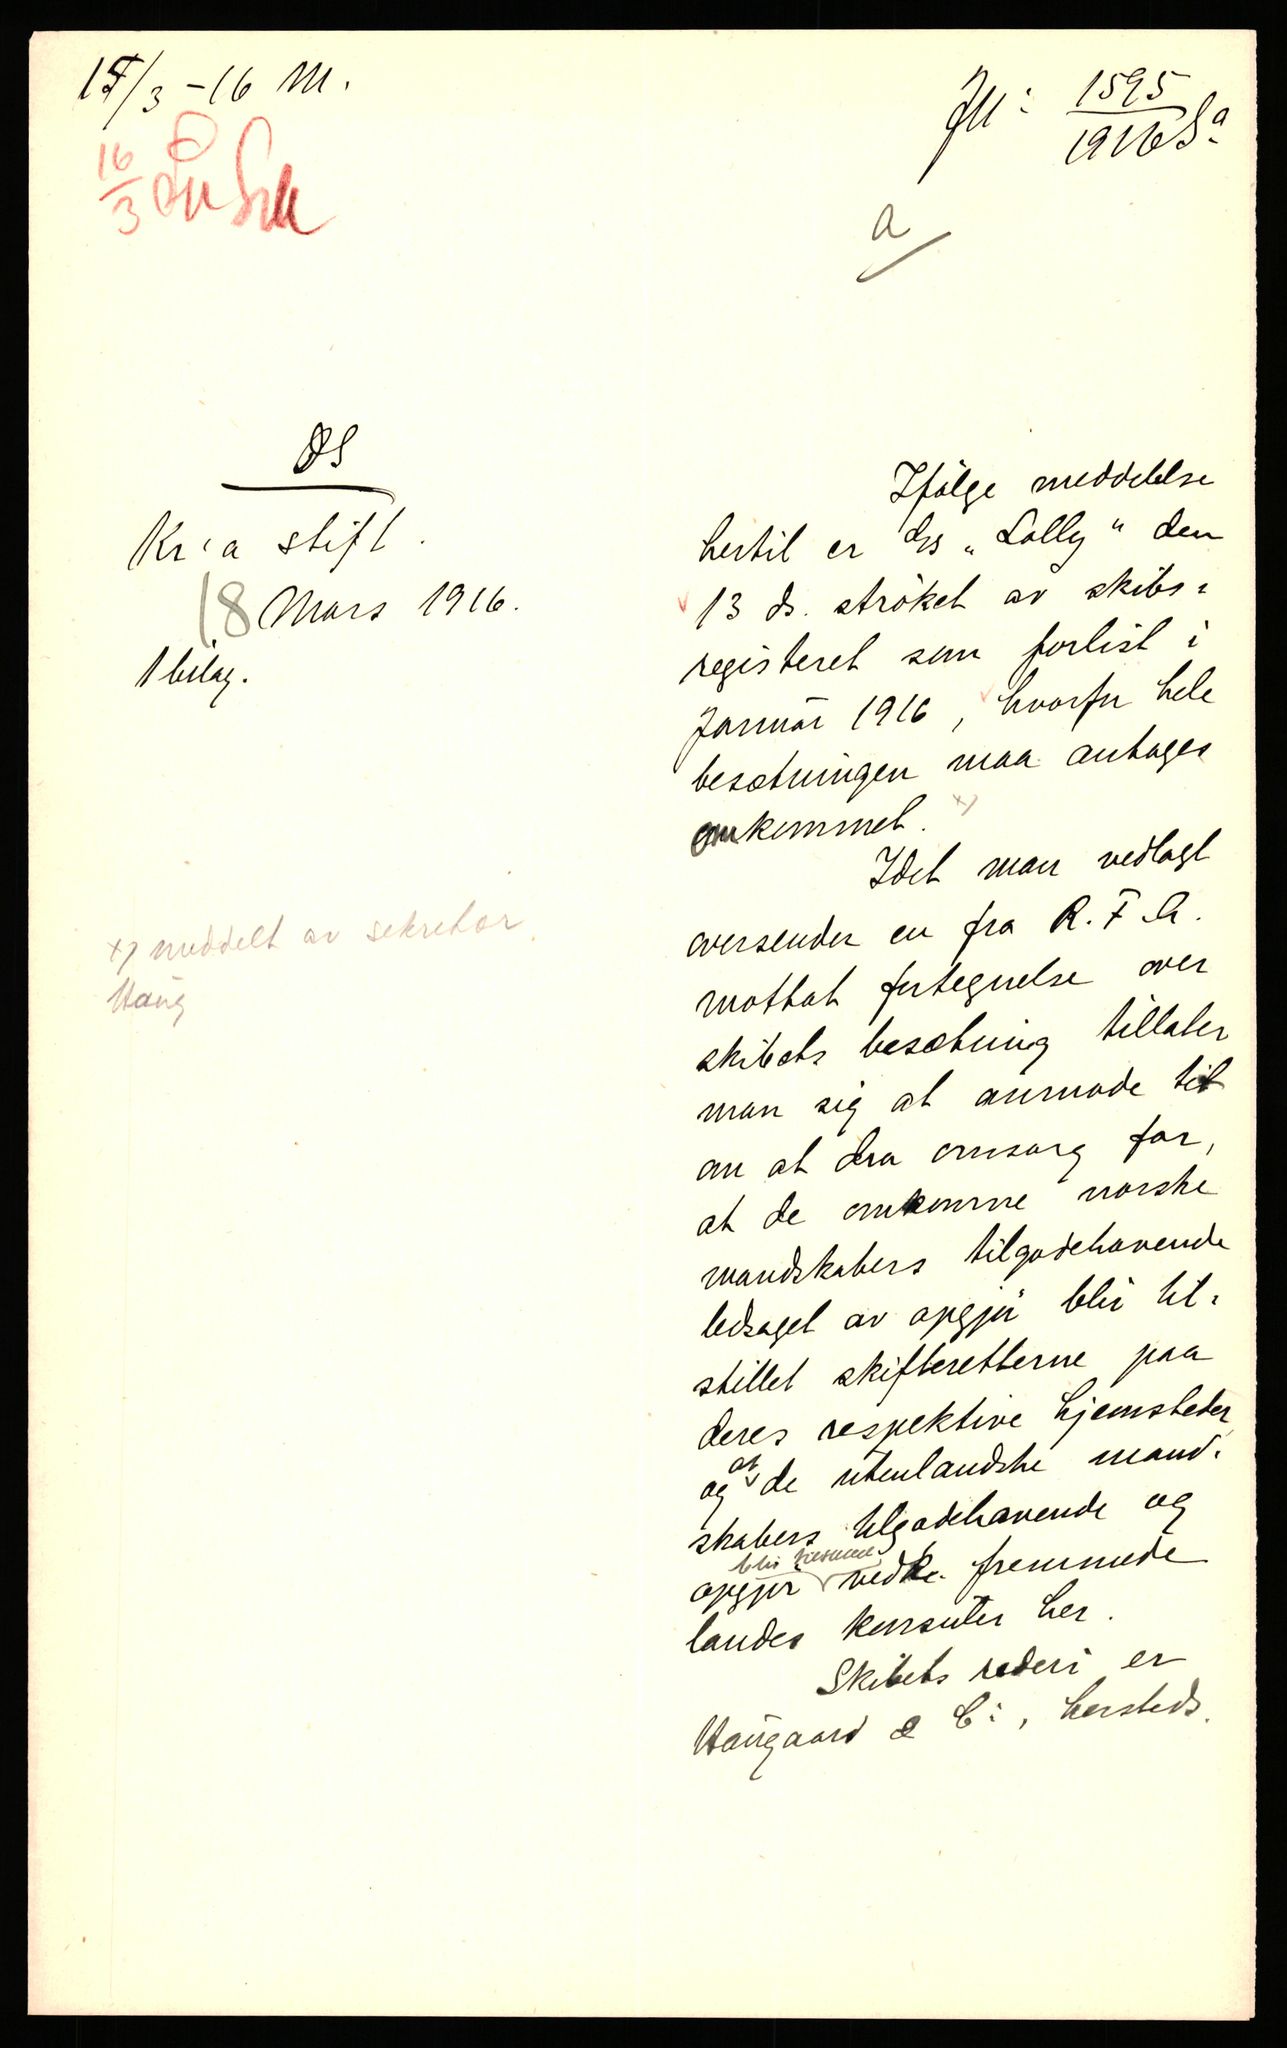 15/3 - 16 M.
JN: 1595
1916 Sa
16
3
a
DS
Kr:a stift.
18 Mars 1916.
1 bilag.
x) meddelt av sekretær
Haug
Ifølge meddelelse
hertil er D/S „Lolly" den
13 ds. strøket av skibs-
registeret som forlist i
Januar 1916, hvorfor hele
besætningen maa antages
omkommet. x)
Idet man vedlagt
oversender en fra R.F.A.
mottat fortegnelse over
skibets besætning tillater
man sig at anmode
om at dra omsorg for,
at de omkomne norske
mandskabers tilgodehavende
ledsaget av opgjør blir til-
stillet skifteretterne paa
deres respektive hjemsteder
og at de utenlandske mand-
skabers tilgodehavende og
opgjør blir tilstillet vedk. fremmede
landes konsuler her.
Skibets rederi er
Haugaard & Co, hersteds.